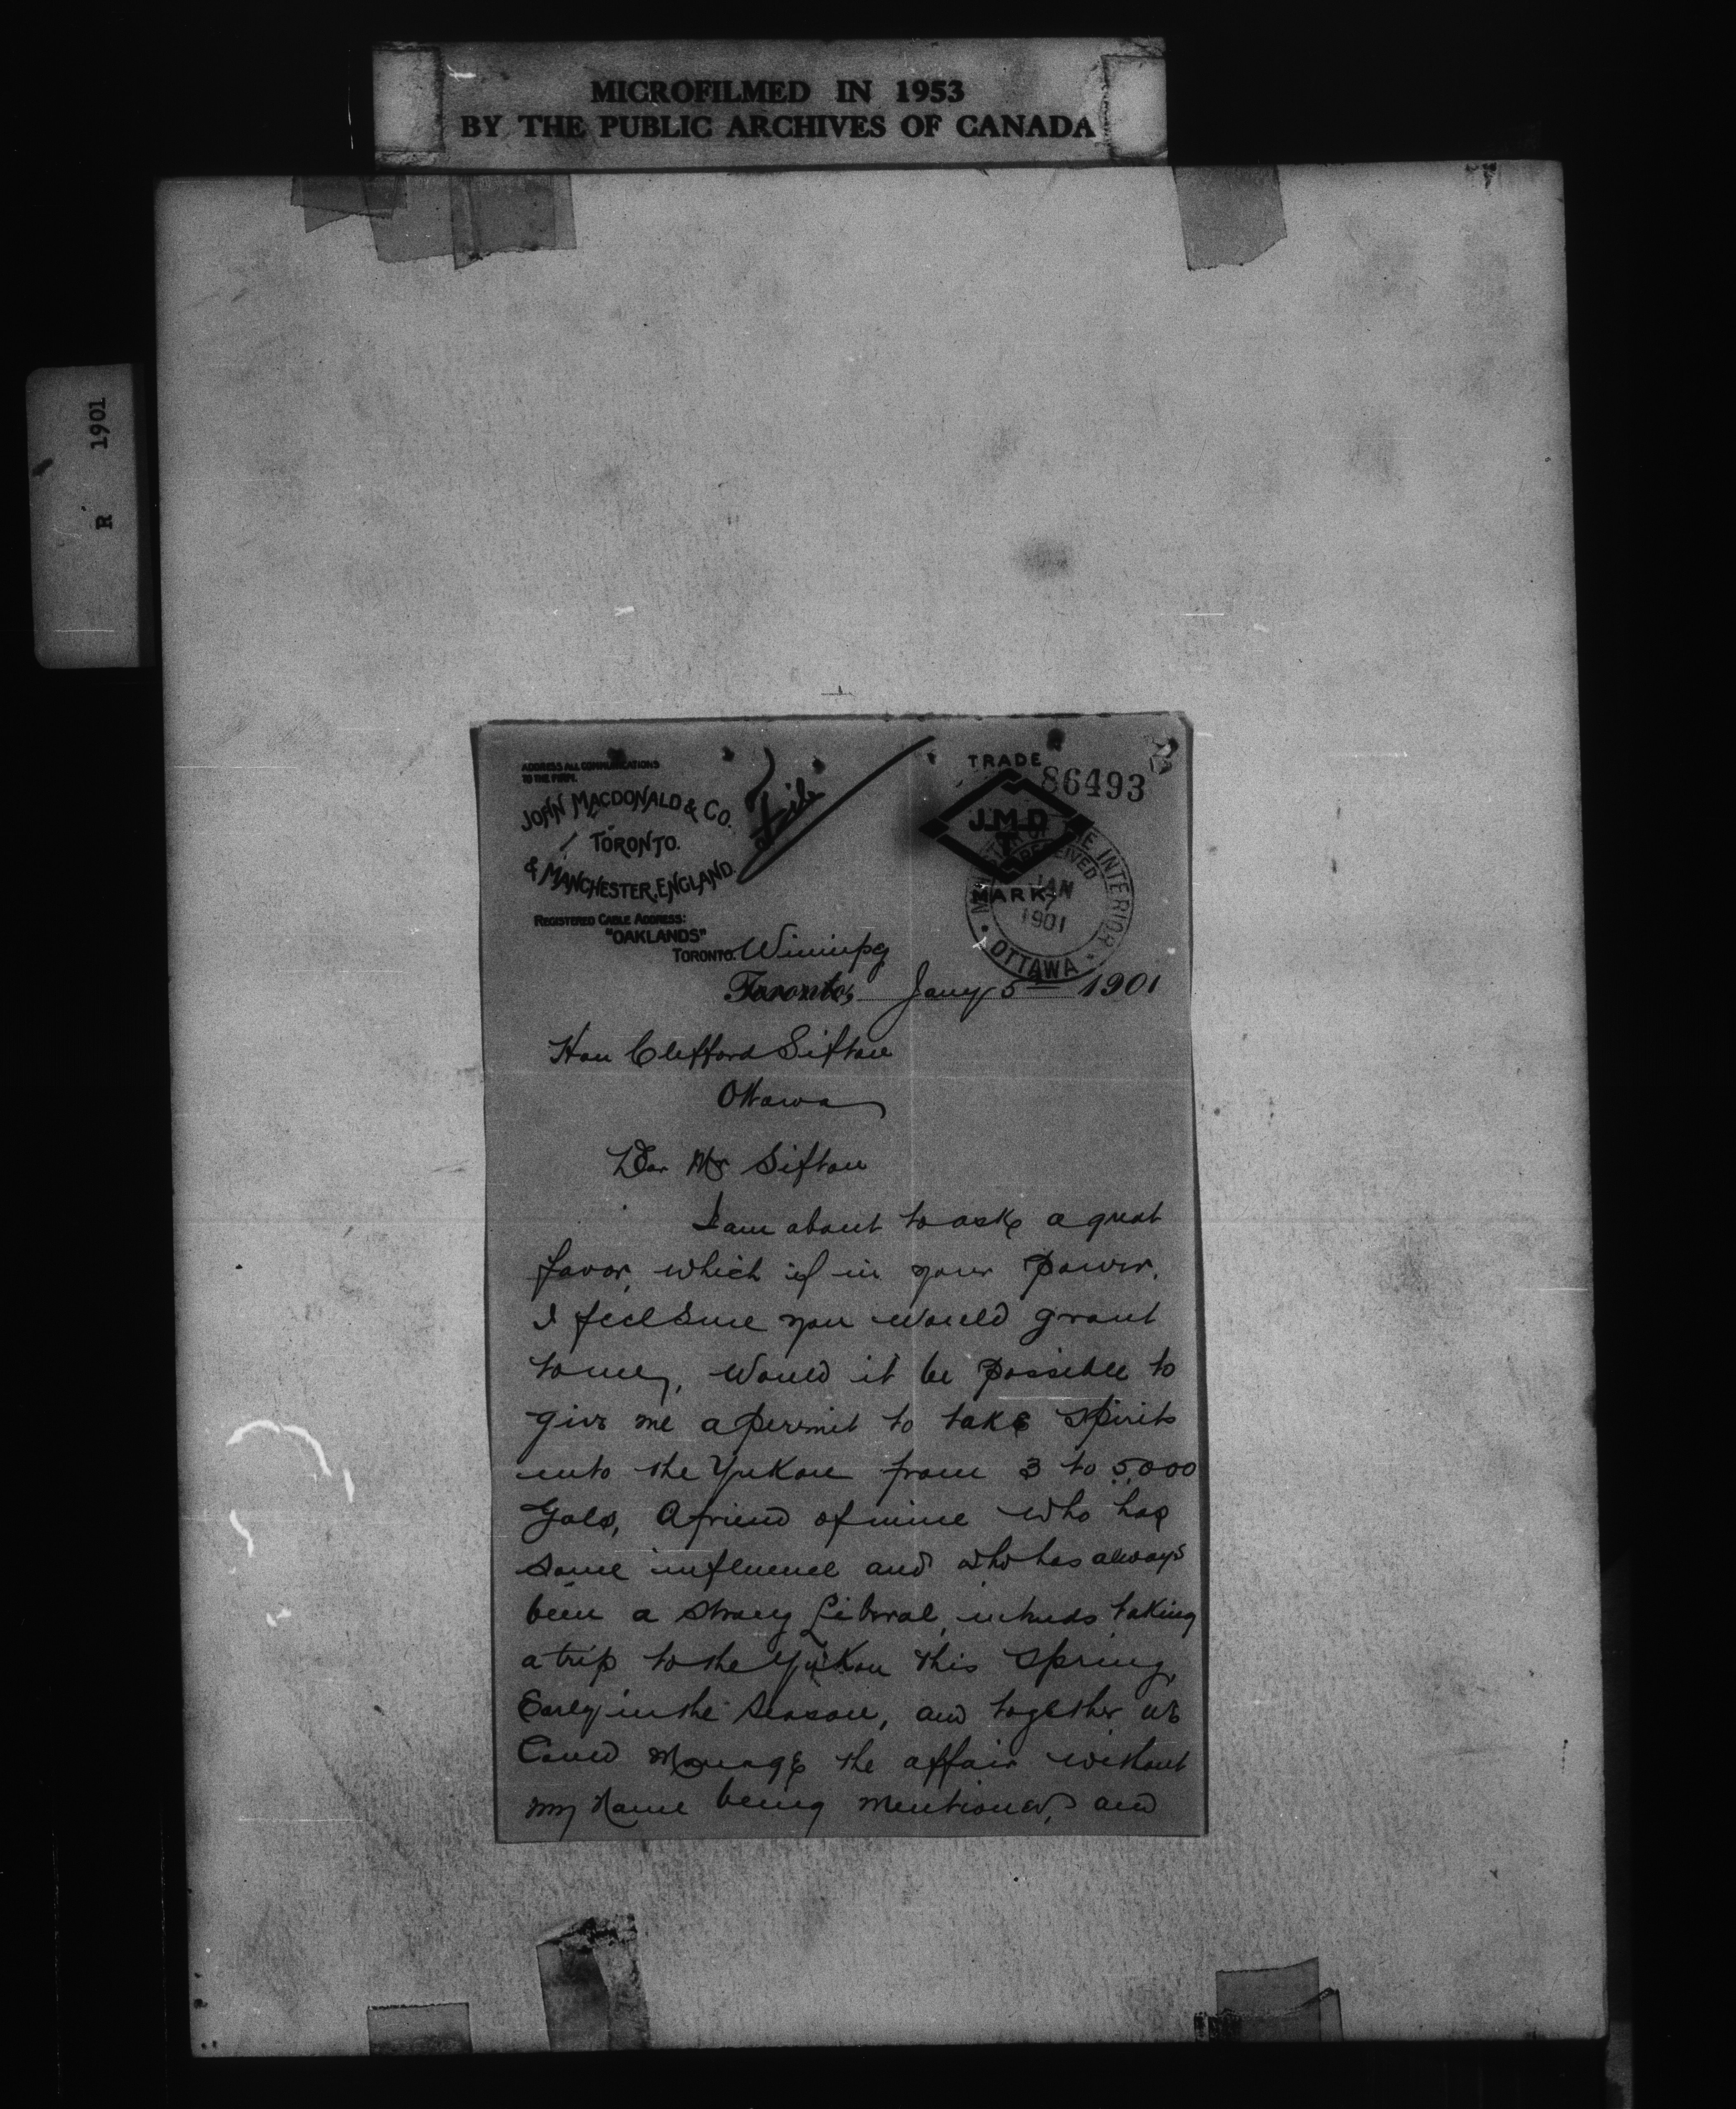 MICROFILMED IN 1953
BY THE PUBLIC ARCHIVES OF CANADA
R 1901
ADDRESS ALL COMMUNICATIONS
TO THE FIRM.
JOHN MACDONALD & CO.
TORONTO.
& MANCHESTER, ENGLAND.
REGISTERED CABLE ADDRESS:
"OAKLANDS"
TORONTO.
File
TRADE
86493
J.M.D
MARK
MINISTER OF THE INTERIOR
RECEIVED
JAN
7
1901
OTTAWA
Winnipeg
Toronto, Jany 5th 1901
Hon Clifford Sifton
Ottawa
Dear Mr Sifton
I am about to ask a great
favor, which if in your power,
I feel sure you would grant
to me, Would it be possible to
give me a permit to take spirits
into the Yukon from 3 to 5,000
Gals, A friend of mine who has
some influence and who has always
been a strong Liberal, intends taking
a trip to the Yukon this Spring,
Early in the Season, and together we
Could Manage the affair without
my Name being mentioned, and